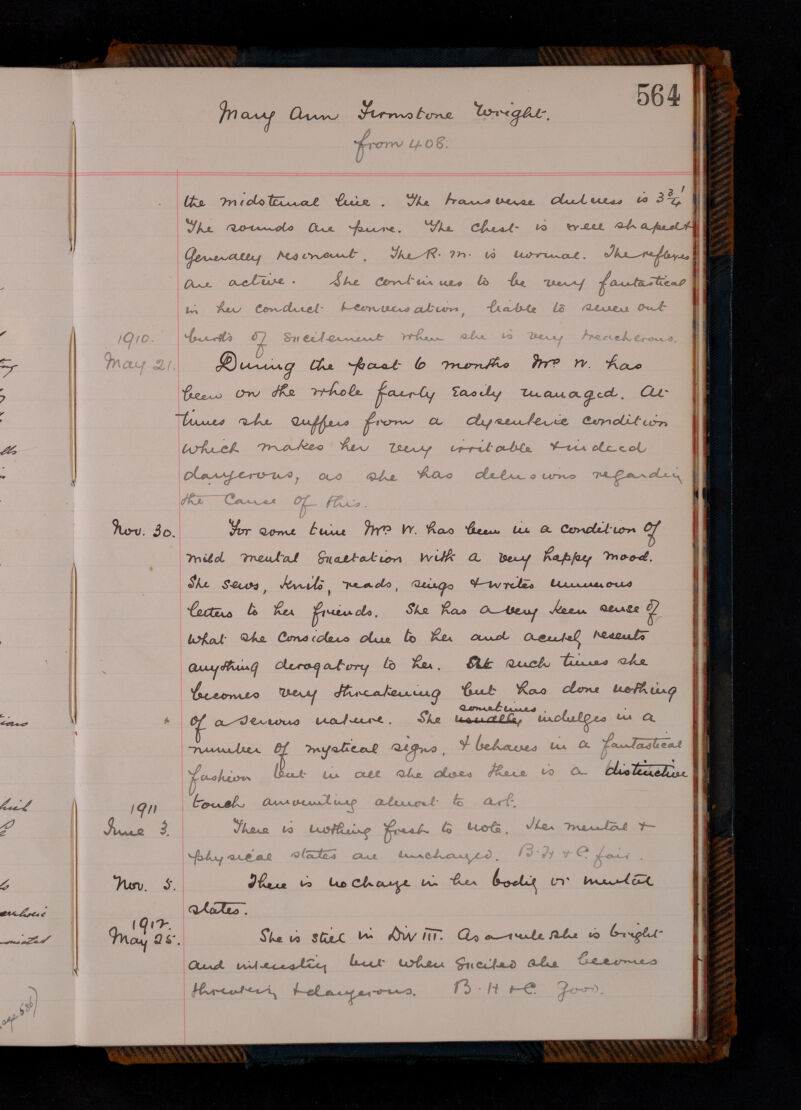 564
Mary Ann Firmstone Wright.
from 408.
the midsternal line. The transverse dulness is 3¾'
The sounds are pure. The chest is well shaped &
Generally resonant. The R. m. is normal. The reflexes
are active. She continues to be very fantastical
in her conduct & conversation, liable to severe out
bursts of excitement when she is very treacherous.
1910.
May 21. During the past 6 months Mrs W. has
been on the whole fairly easily managed. At
times she suffers from a dysenteric condition
which makes her very irritable & indeed
dangerous, as she has delusions regarding
the cause of this.
Nov. 30. For some time Mrs W. has been in a condition of
mild mental exaltation with a very happy mood.
She sews, knits, reads, sings & writes numerous
letters to her friends. She has a very keen sense of
what she considers due to her and acutely resents
anything derogatory to her. At such times she
becomes very threatening but has done nothing
of a serious nature. She usually sometimes indulges in a
number of mystical signs, & behaves in a fantastical
fashion but in all she does there is a distinctive
touch amounting almost to art.
1911
June 3. There is nothing fresh to note. Her mental &
physical states are unchanged. B.H & C. fair.
Nov. 5. There is no change in her bodily or mental
states.
1912.
May 25. She is still in Div III. As a rule she is bright
and interesting but when excited she becomes
threatening & dangerous. B.H & C. Good.